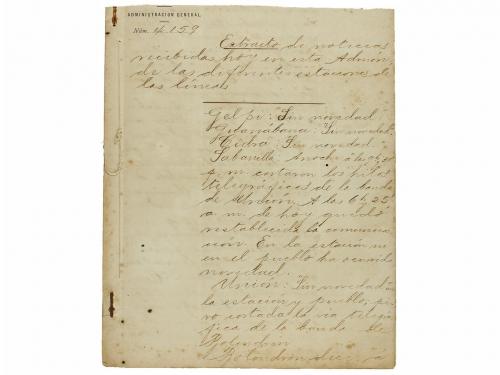 ADMINISTRACION GENERAL
Núm. 4.159
Extracto de noticias
recibidas hoy en esta Admón.
de las diferentes estaciones de
las líneas
Gelpi: Sin novedad
Guanábana: Sin novedad
Cidra: Sin novedad.
Sabanilla: Anoche á las
p. m. cortaron los hilos
telegráficos de la banda
de Unión. A las 6 h 25
a m. de hoy quedó
restablecida la comunica
ción. En la estación ni
en el pueblo ha ocurrido
novedad.
Unión: Sin novedad en
la estación y pueblo, pe-
ro cortada la vía telegrá
fica de la banda de
Bolondrón
Bolondrón dice: á